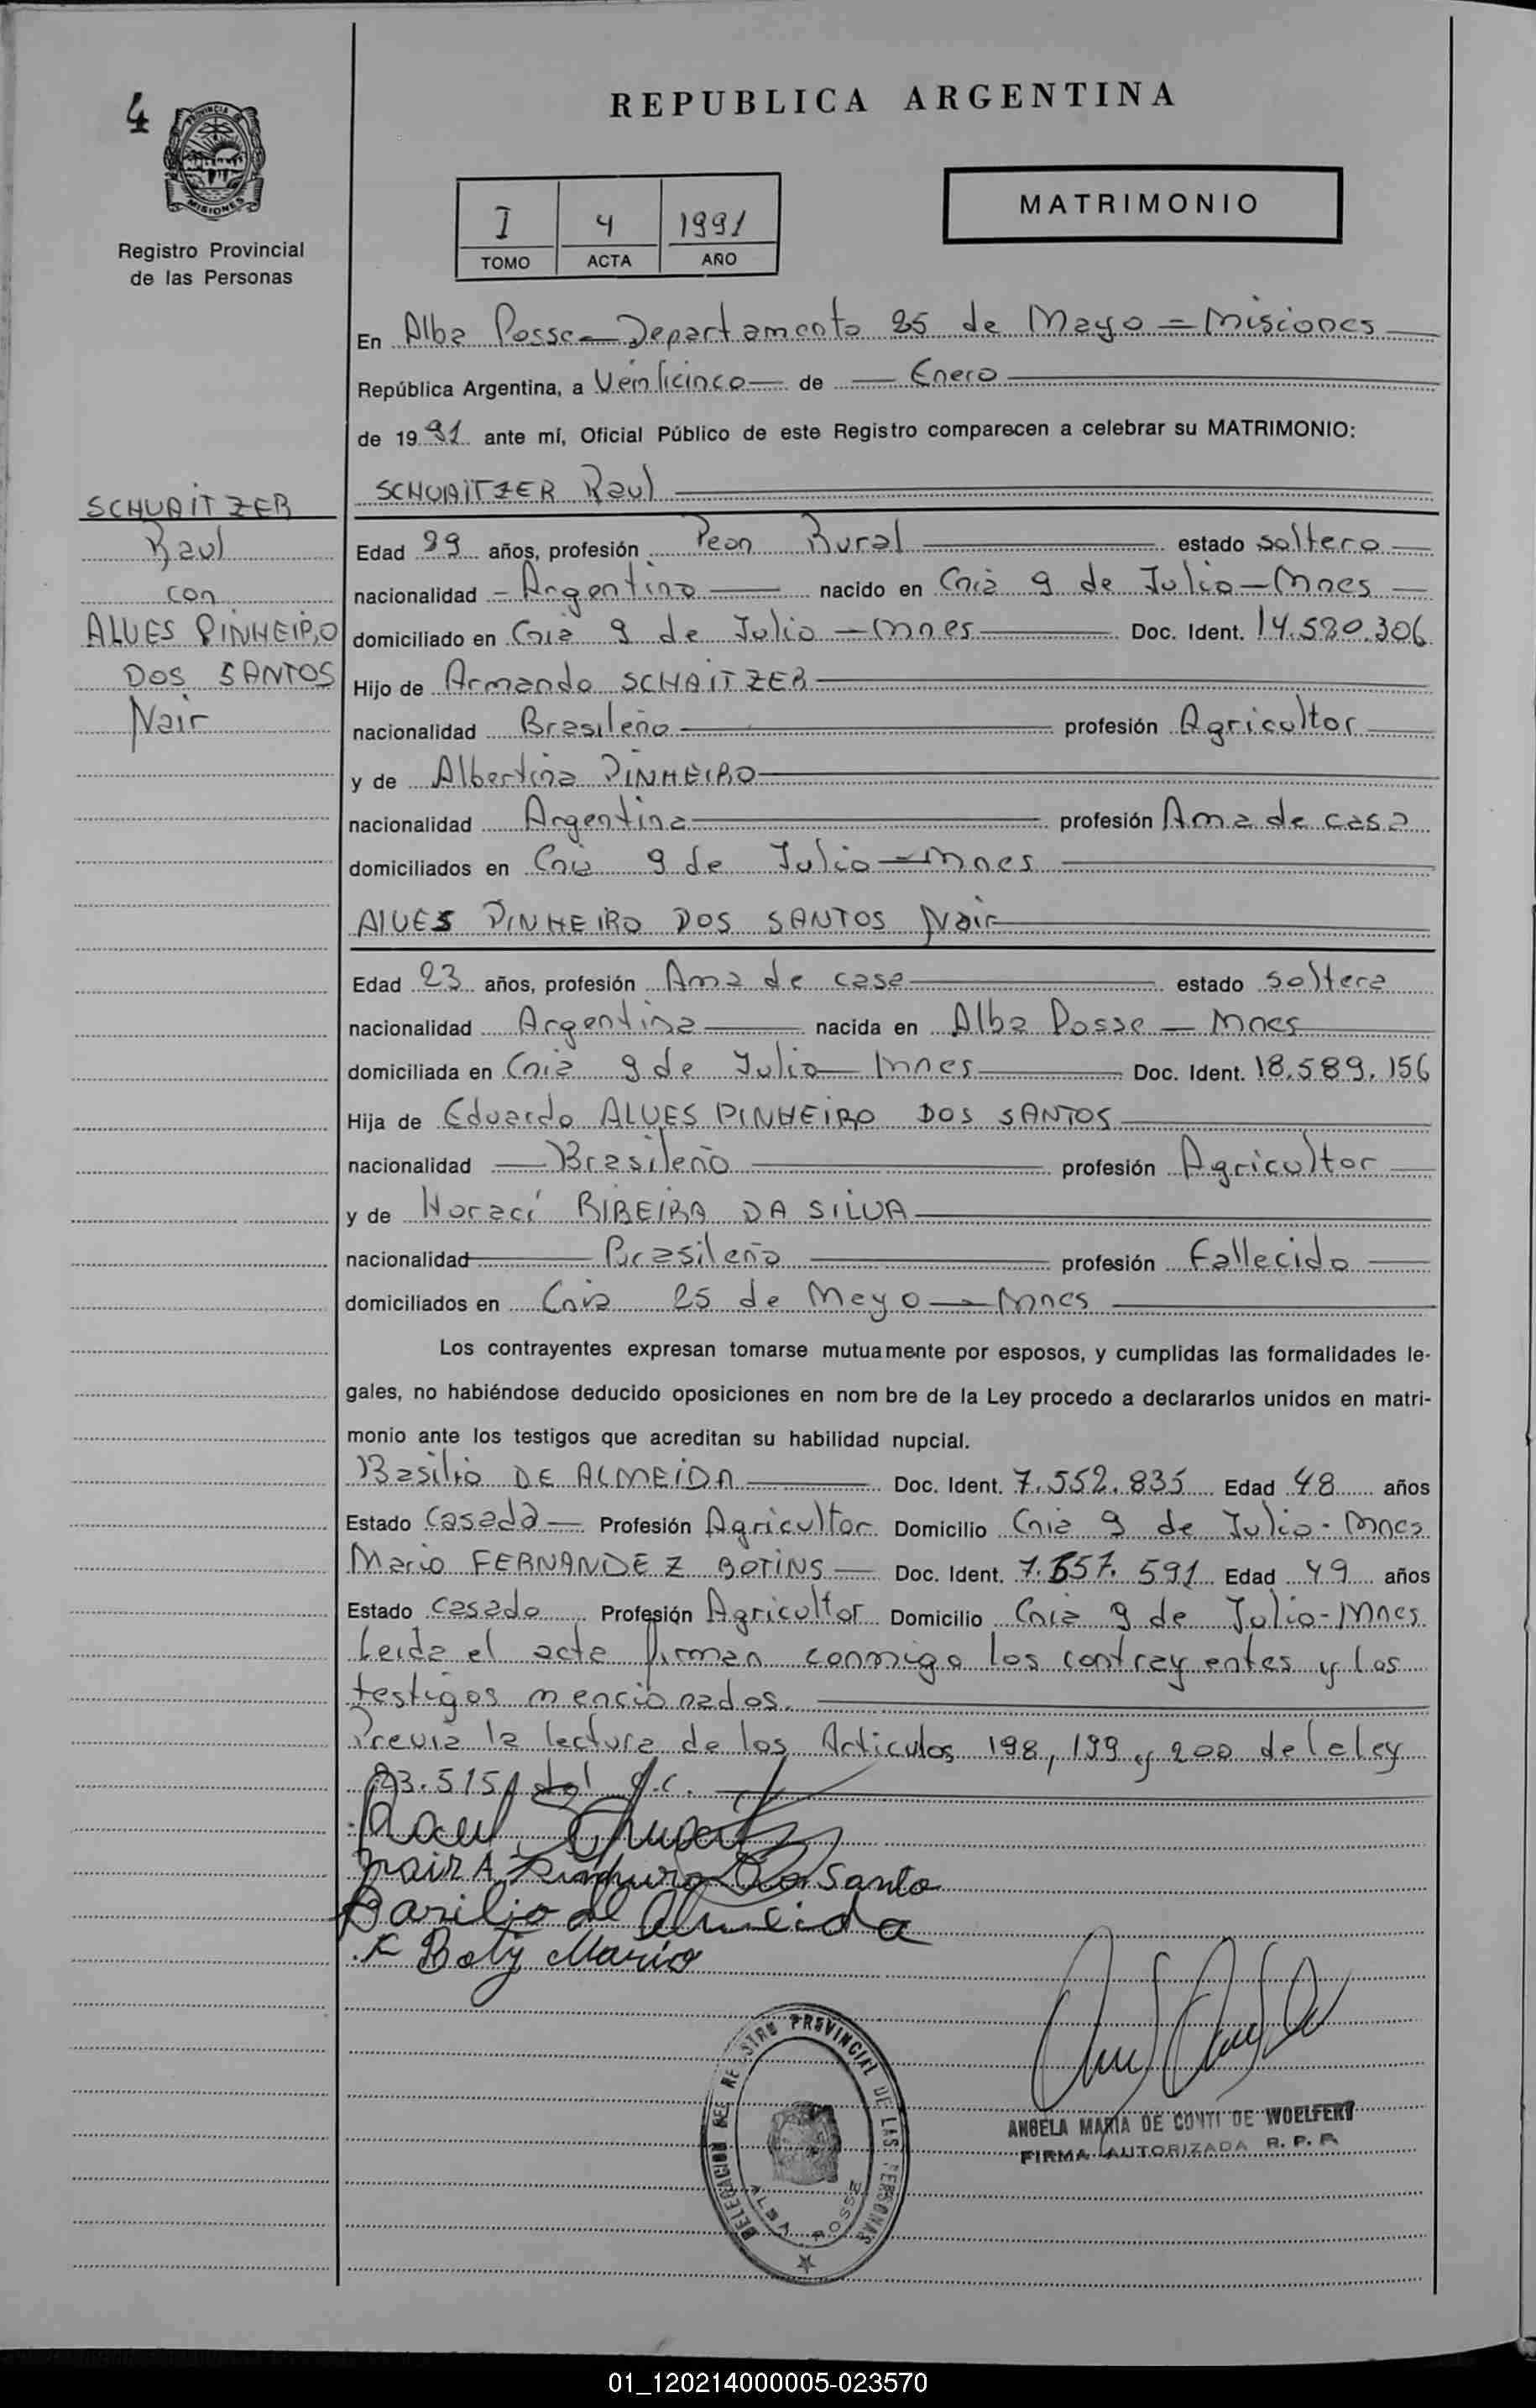 4
PROVINCIA DE
MISIONES
Registro Provincial
de las Personas
REPUBLICA ARGENTINA
MATRIMONIO
I 4 1991
TOMO ACTA AÑO
En Alba Posse - Departamento 25 de Mayo = Misiones
República Argentina, a Veinticinco de Enero
de 1991 ante mí, Oficial Público de este Registro comparecen a celebrar su MATRIMONIO:
SCHUAITZER
Raul
con
ALUES PINHEIRO
DOS SANTOS
Nair
SCHUAITZER Raul
Edad 29 años, profesión Peon Rural estado soltero
nacionalidad Argentino nacido en Cnia 9 de Julio - Mnes
domiciliado en Cnia 9 de Julio - Mnes Doc. Ident. 14.520.306
Hijo de Armando SCHAITZER
nacionalidad Brasileño profesión Agricultor
y de Albertina PINHEIRO
nacionalidad Argentina profesión Ama de casa
domiciliados en Cnia 9 de Julio - Mnes
AlUES PINHEIRO DOS SANTOS Nair
Edad 23 años, profesión Ama de casa estado soltera
nacionalidad Argentina nacida en Alba Posse - Mnes
domiciliada en Cnia 9 de Julio - Mnes Doc. Ident. 18.589.156
Hija de Eduardo ALUES PINHEIRO DOS SANTOS
nacionalidad Brasileño profesión Agricultor
y de Horací RIBEIRA DA SILUA
nacionalidad Brasileña profesión Fallecida
domiciliados en Cnia 25 de Mayo - Mnes
Los contrayentes expresan tomarse mutuamente por esposos, y cumplidas las formalidades le-
gales, no habiéndose deducido oposiciones en nom bre de la Ley procedo a declararlos unidos en matri-
monio ante los testigos que acreditan su habilidad nupcial.
Basilio DE ALMEIDA Doc. Ident. 7.552.835 Edad 48 años
Estado Casado Profesión Agricultor Domicilio Cnia 9 de Julio - Mnes
Mario FERNANDEZ BOTINS Doc. Ident. 7.557.591 Edad 49 años
Estado Casado Profesión Agricultor Domicilio Cnia 9 de Julio - Mnes
Leida el acta firman conmigo los contrayentes y los
testigos mencionados.
Previa la lectura de los Articulos 198, 199 y 200 de la ley
23.515 del C.C.
Raul
Nair A. Dos Santo
Basilio de Almeida
F Boty Mario
DELEGACION DEL REGISTRO PROVINCIAL DE LAS PERSONAS
ALBA POSSE
ANGELA MARIA DE CONTI DE WOELFERT
FIRMA AUTORIZADA R. P. P.
01_120214000005-023570